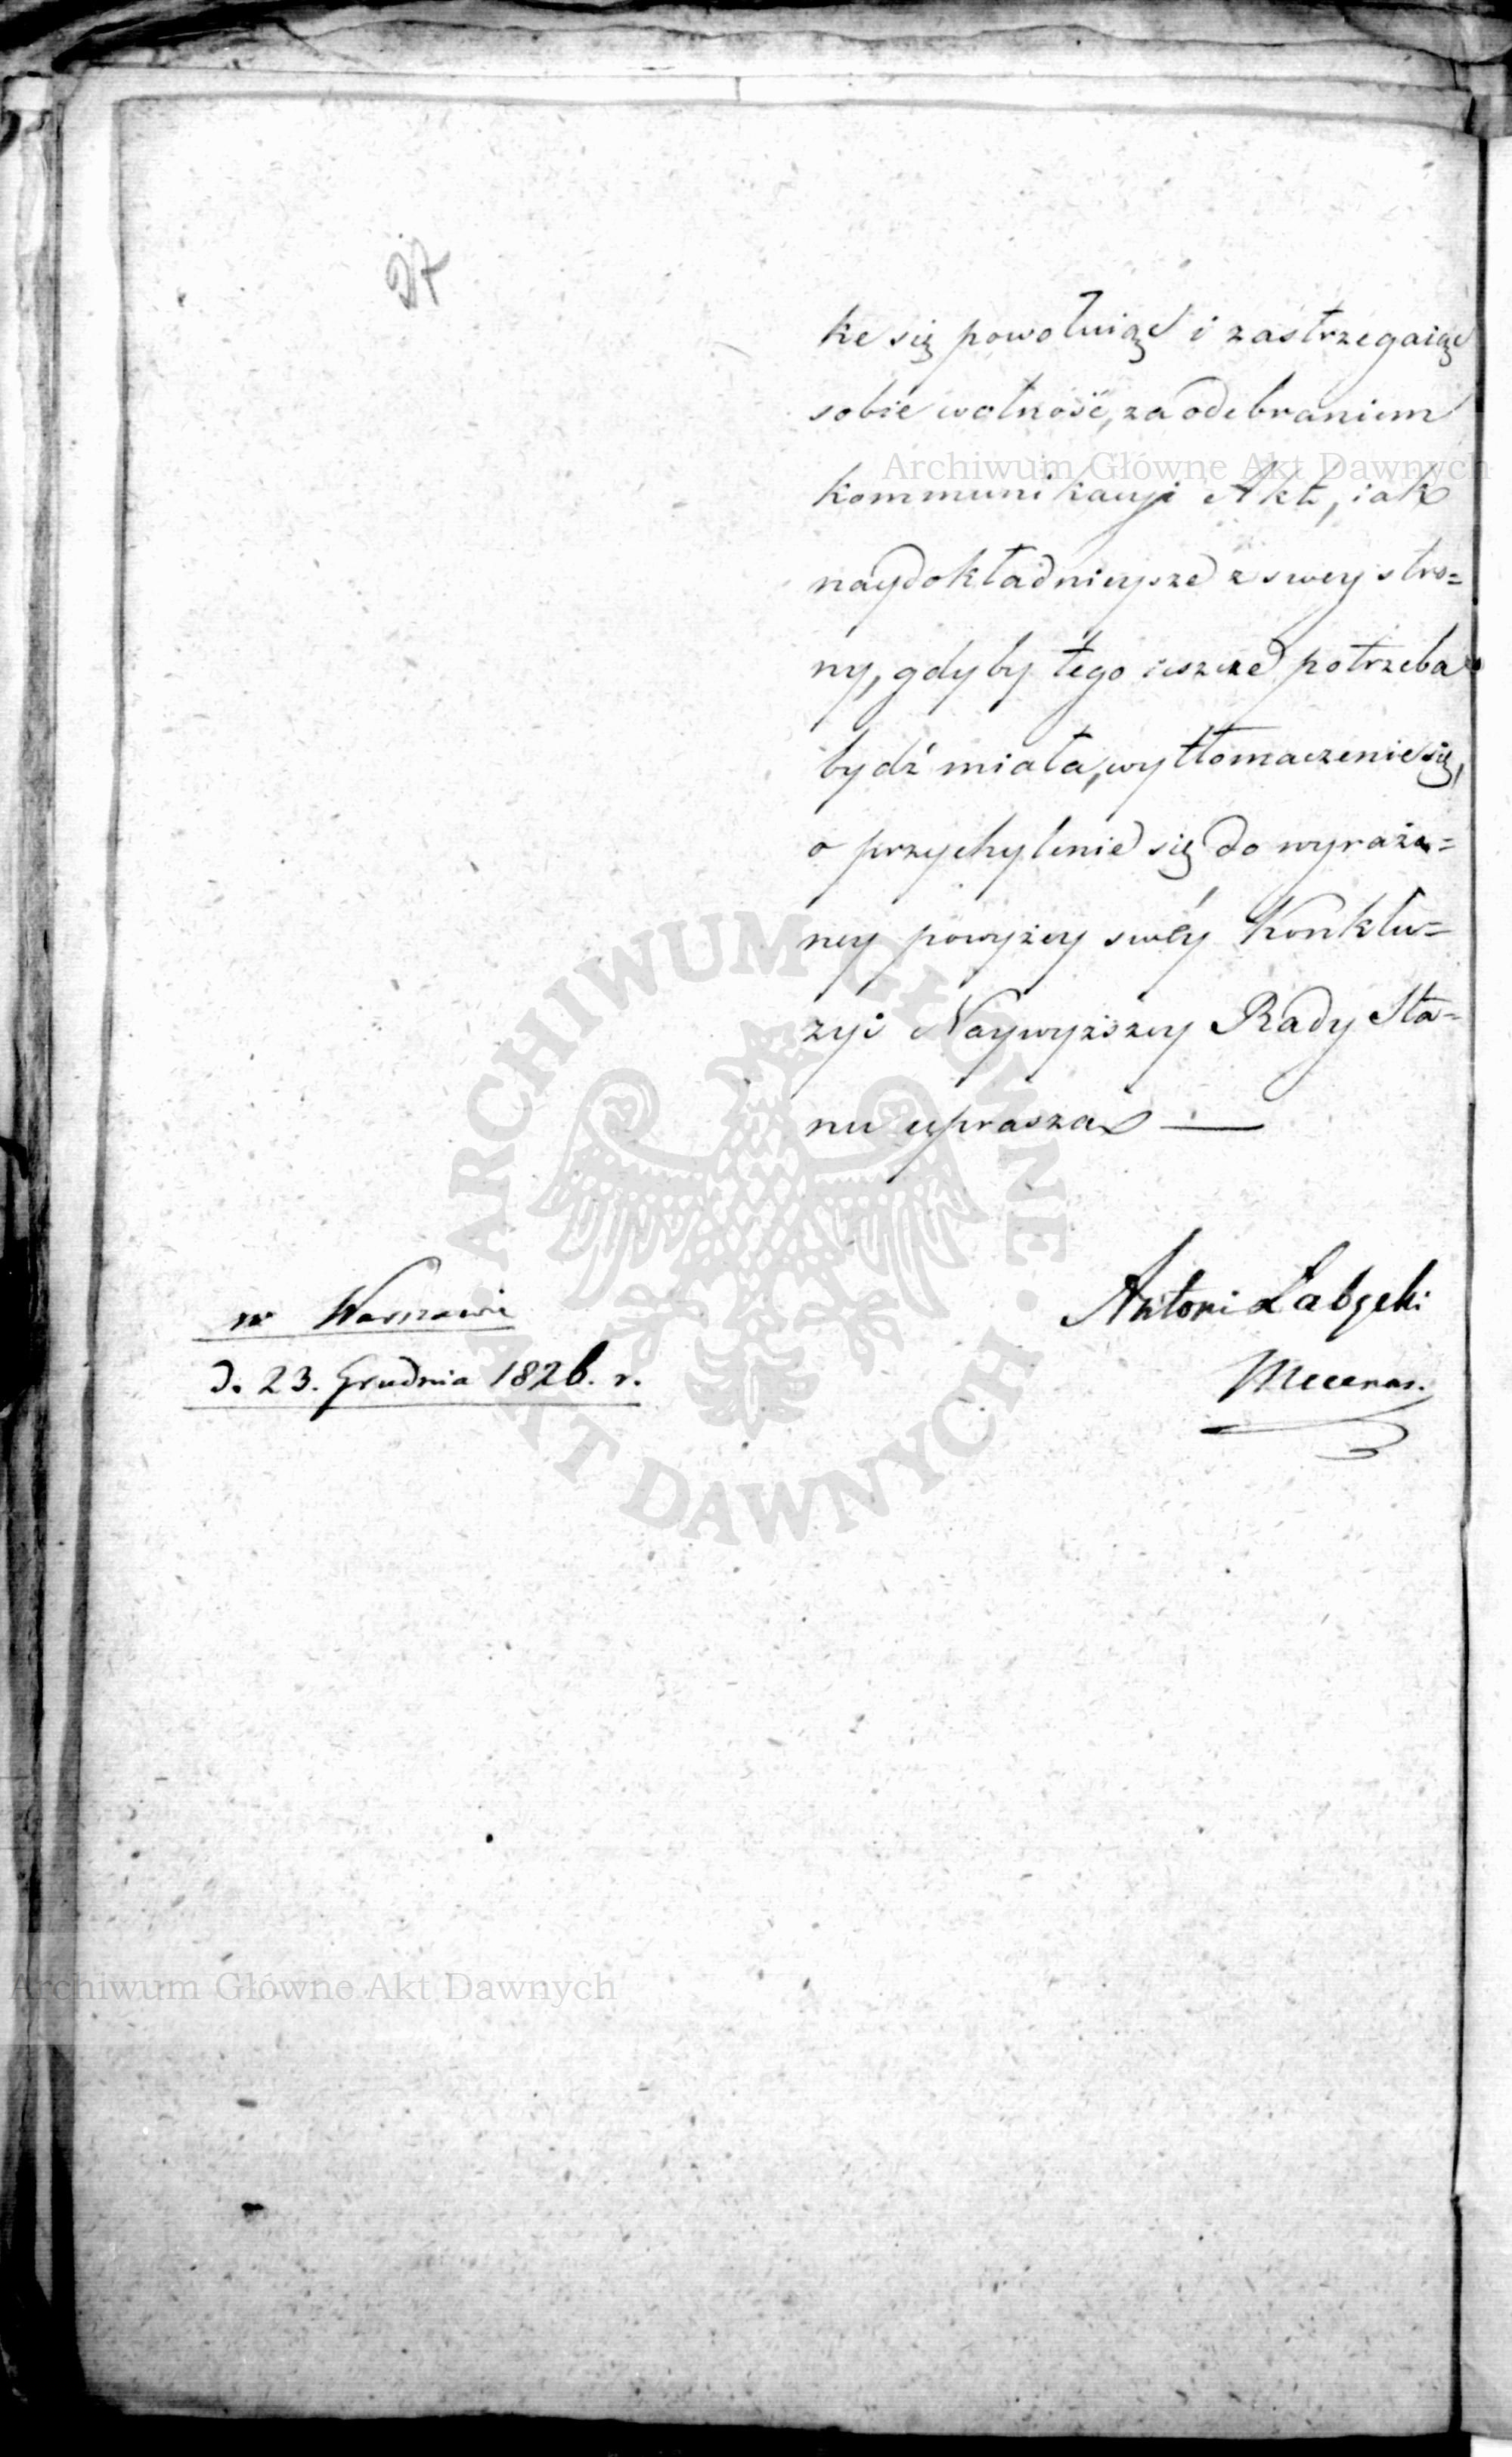 27
ke się powołuiąc i zastrzegaiąc
sobie wolność, za odebraniem
Archiwum Główne Akt Dawnych
kommunikacyi Akt, iak
naydokładnieysze z swey stro=
ny, gdyby tego ieszcze potrzeba
bydź miała, wytłomaczenie się,
o przychylenie się do wyrażo=
ney powyżey swéy Konklu=
zyi Naywyższey Rady Sta=
nu uprasza —
ARCHIWUM GŁÓWNE AKT DAWNYCH
w Warszawie
d. 23. Grudnia 1826. r.
Antoni Łabęcki
Mecenas.
Archiwum Główne Akt Dawnych